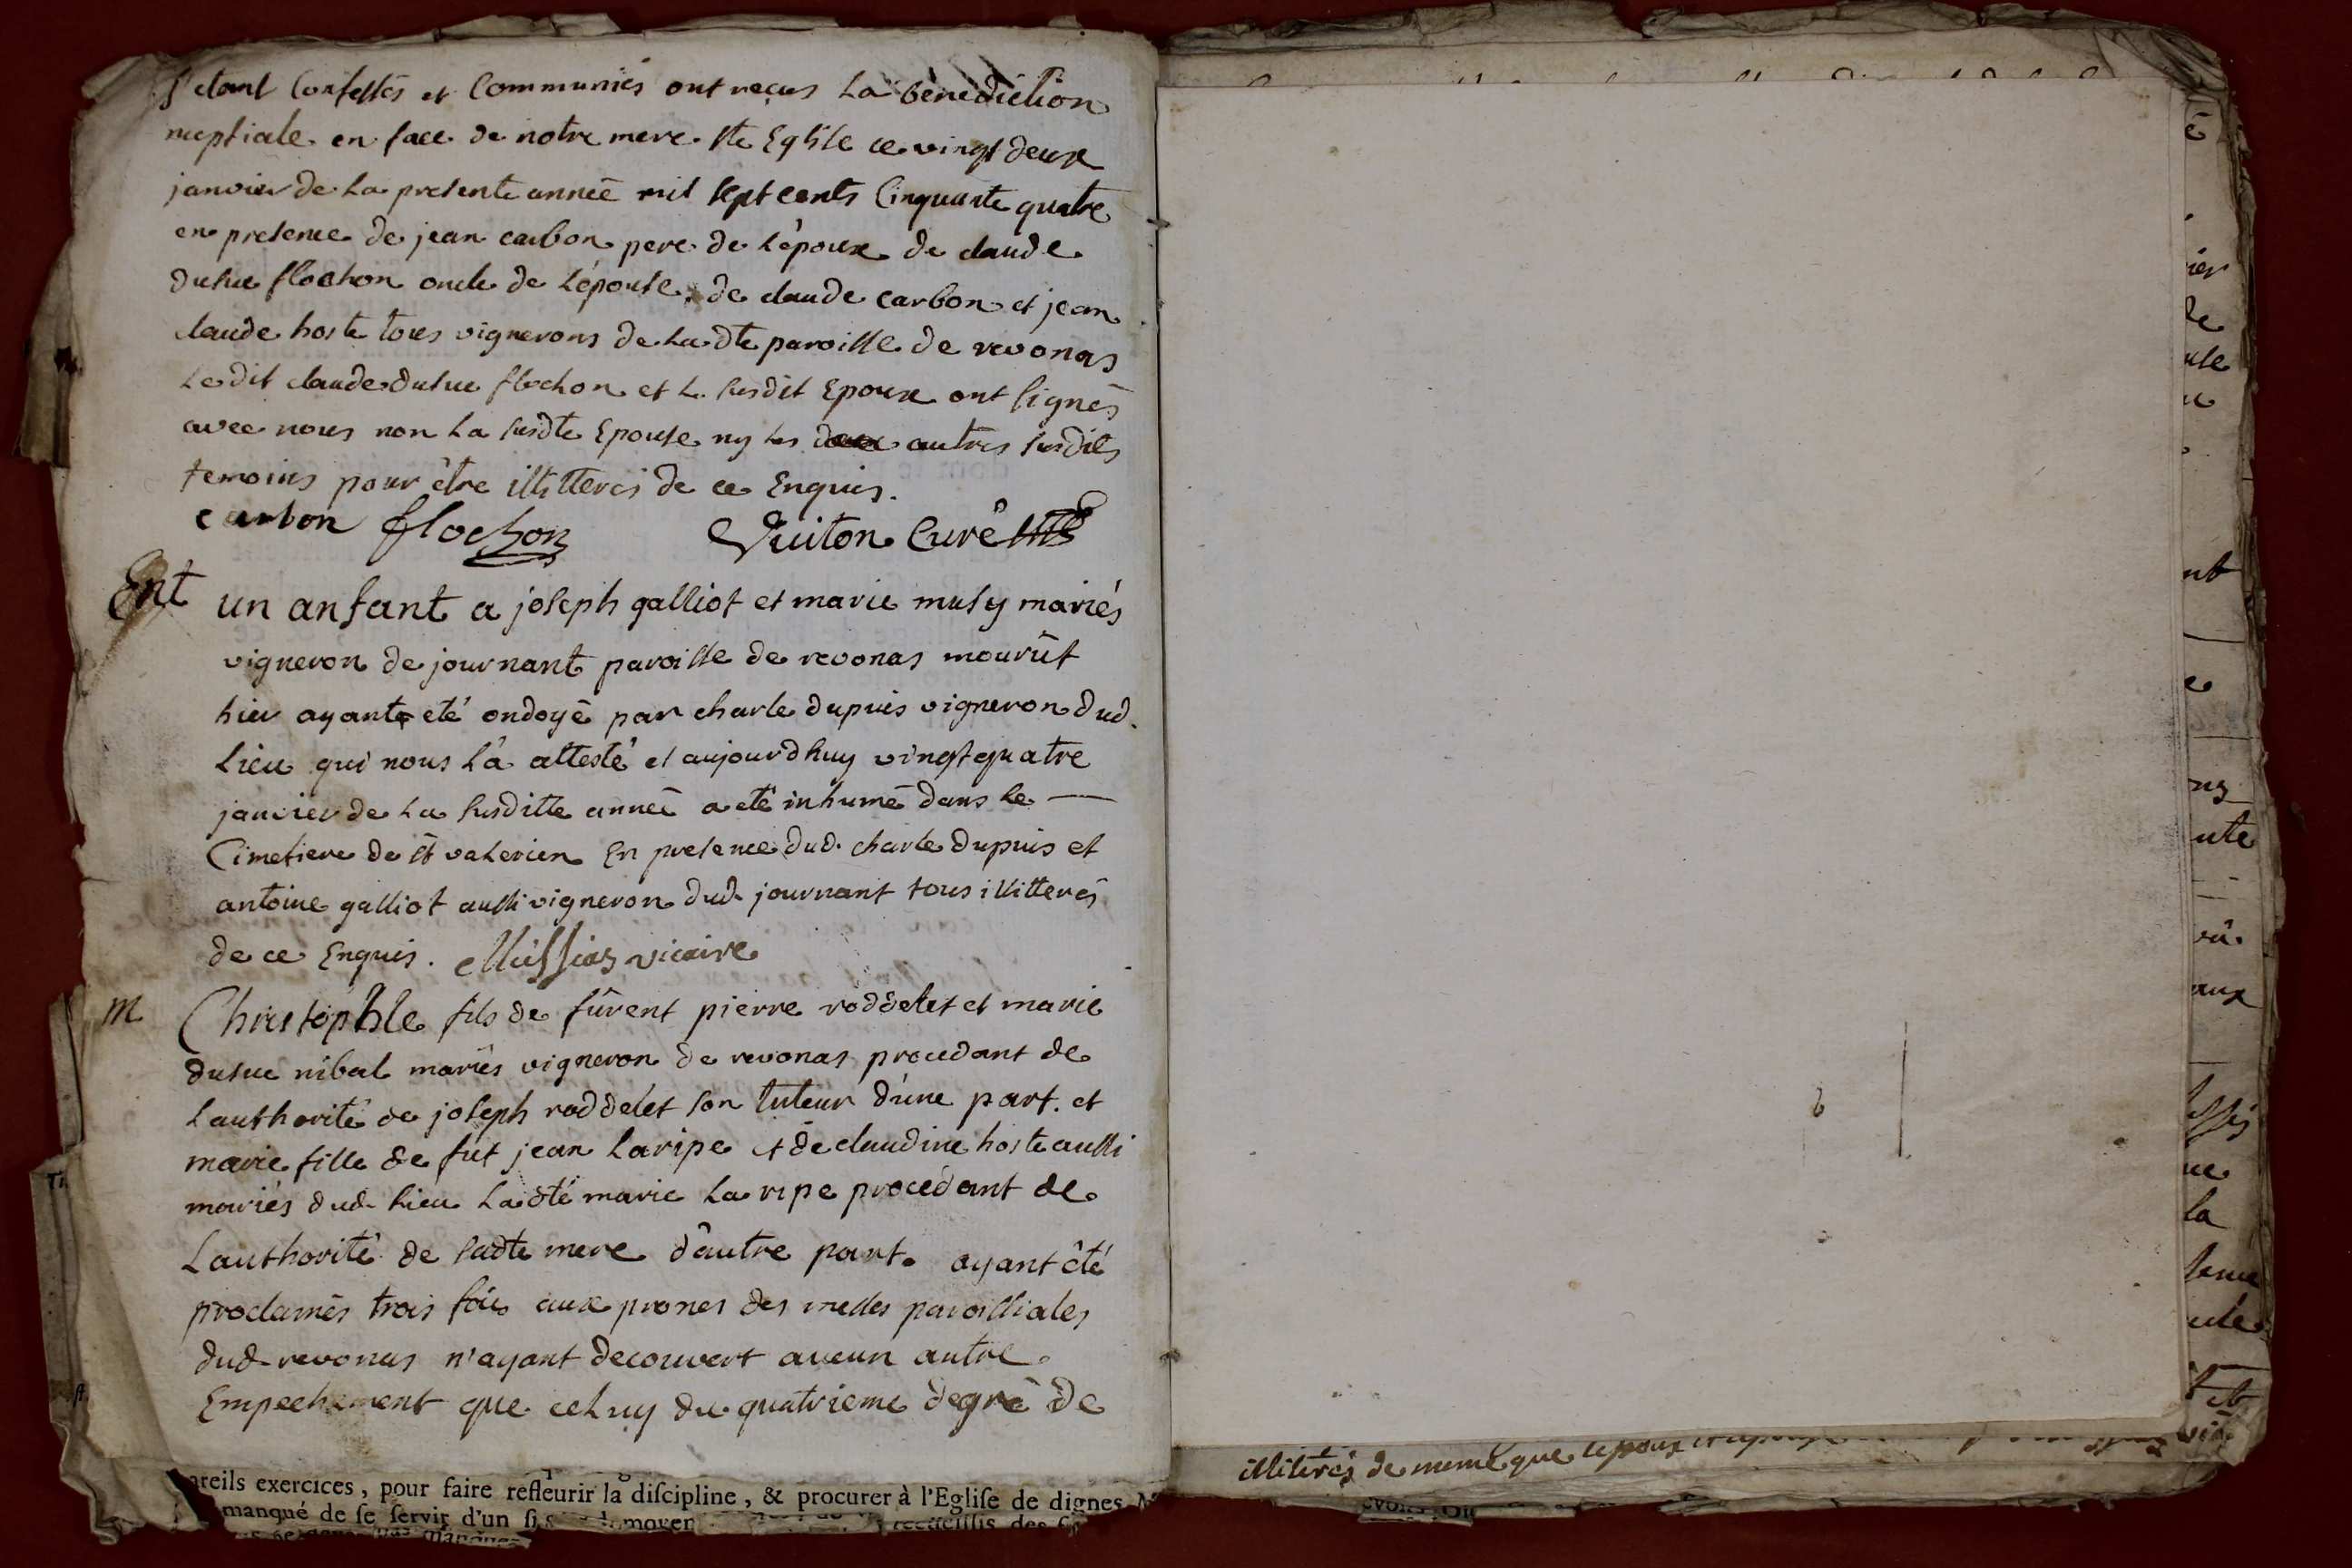 s'etant Confessés et Communiés ont reçus La benediction
nuptiale en face de notre mere ste Eglise ce vingt deux
janvier de La presente année mil sept cents Cinquante quatre
en presence de jean carbon pere de L'époux de claude
dusuc flochon oncle de L'épouse, de claude carbon et jean
claude hoste tous vignerons de La dte paroisse de revonas
Le dit claude dusuc flochon et Le susdit Epoux ont signés
avec nous non La susdte Epouse ny les deux autres susdits
temoins pour être illitterés de ce Enquis.
carbon flochon Vuiton Curé
Ent un anfant a joseph galliot et marie musy mariés
vigneron de journant paroisse de revonas mourût
hier ayant eté ondoyé par charle dupuis vigneron dud.
Lieu qui nous L'a attesté et aujourdhuy vingt quatre
janvier de La susditte année a eté inhumé dans Le
Cimetiere de st valerien En presence dud. charle dupuis et
antoine galliot aussi vigneron dud journant tous illitterés
de ce Enquis. vicaire
M Christophle fils de fûrent pierre roddelet et marie
dusuc nibal mariés vigneron de revonas procedant de
L'authorité de joseph roddelet son tuteur d'une part. et
marie fille de fut jean Laripe et de claudine hoste aussi
mariés dud Lieu Ladte marie La ripe procédant de
L'authorité de sadte mere d'autre part. ayant été
proclamés trois fois aux prones des messes paroissiales
dud revonas n'ayant decouvert aucun autre
Empechement que celuy du quatrieme degré de
areils exercices, pour faire refleurir la discipline, & procurer à l'Eglise de dignes
manqué de se servir d'un
illiterés de meme que